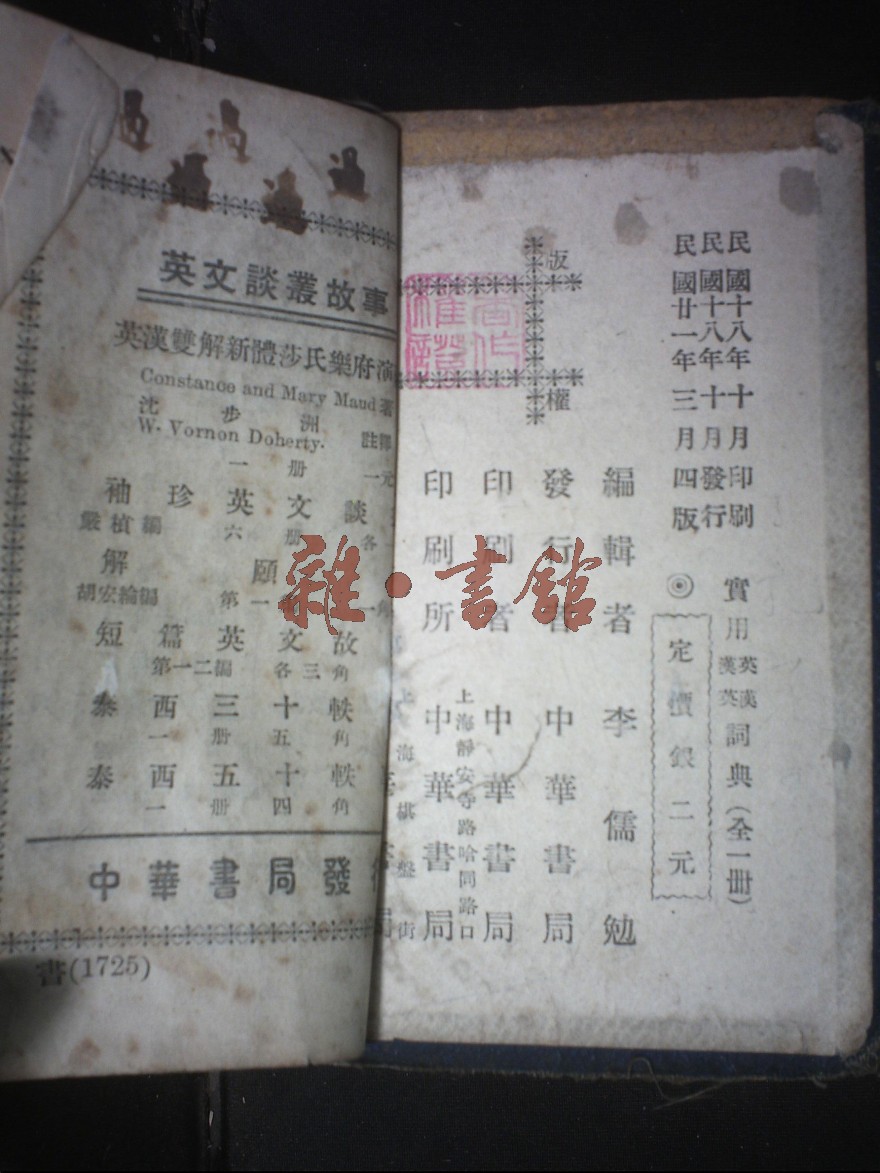 過 過 過
過 過
英文談叢故事
英漢雙解新體莎氏樂府演
Constance and Mary Maud 著
沈步洲
W. Vornon Doherty. 註釋
一册 一元
袖珍英文談
嚴楨編 六册 各
解頤
胡宏綸編 第一 一角
短篇英文故
第一二編 各三角
泰西三十軼
一册 五角
泰西五十軼
一册 四角
中華書局發行
書(1725)
民國十八年十月印刷
民國十八年十月發行
民國廿一年三月四版
實用英漢漢英詞典(全一册)
◎定價銀二元
版權
編輯者 李儒勉
發行者 中華書局
印刷者 中華書局
上海靜安寺路哈同路口
印刷所 中華書局
上海棋盤街
雜·書館